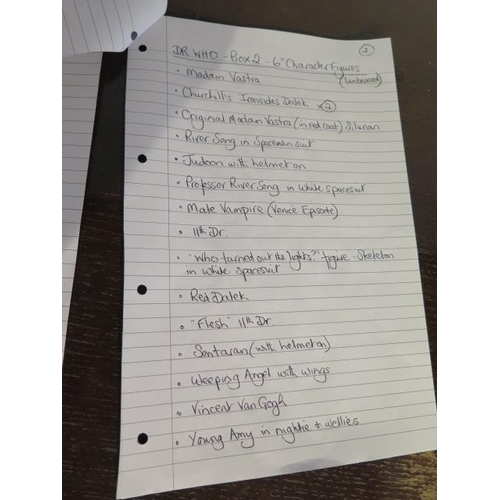 ②
DR WHO - Box 2 - 6" Character Figures
(unboxed)
• Madam Vastra
• Churchill's Ironsides Dalek x②
• Original Madam Vastra (in red coat) Silurian
• River Song in Spaceman suit
• Judoon with helmet on
• Professor River Song in white spacesuit
• Male Vampire (Venice Episode)
• 11th Dr.
• "Who turned out the lights?" figure - Skeleton
in white spacesuit
• Red Dalek
• "Flesh" 11th Dr.
• Sontaran (with helmet on)
• Weeping Angel with wings
• Vincent Van Gogh
• Young Amy in nightie + wellies